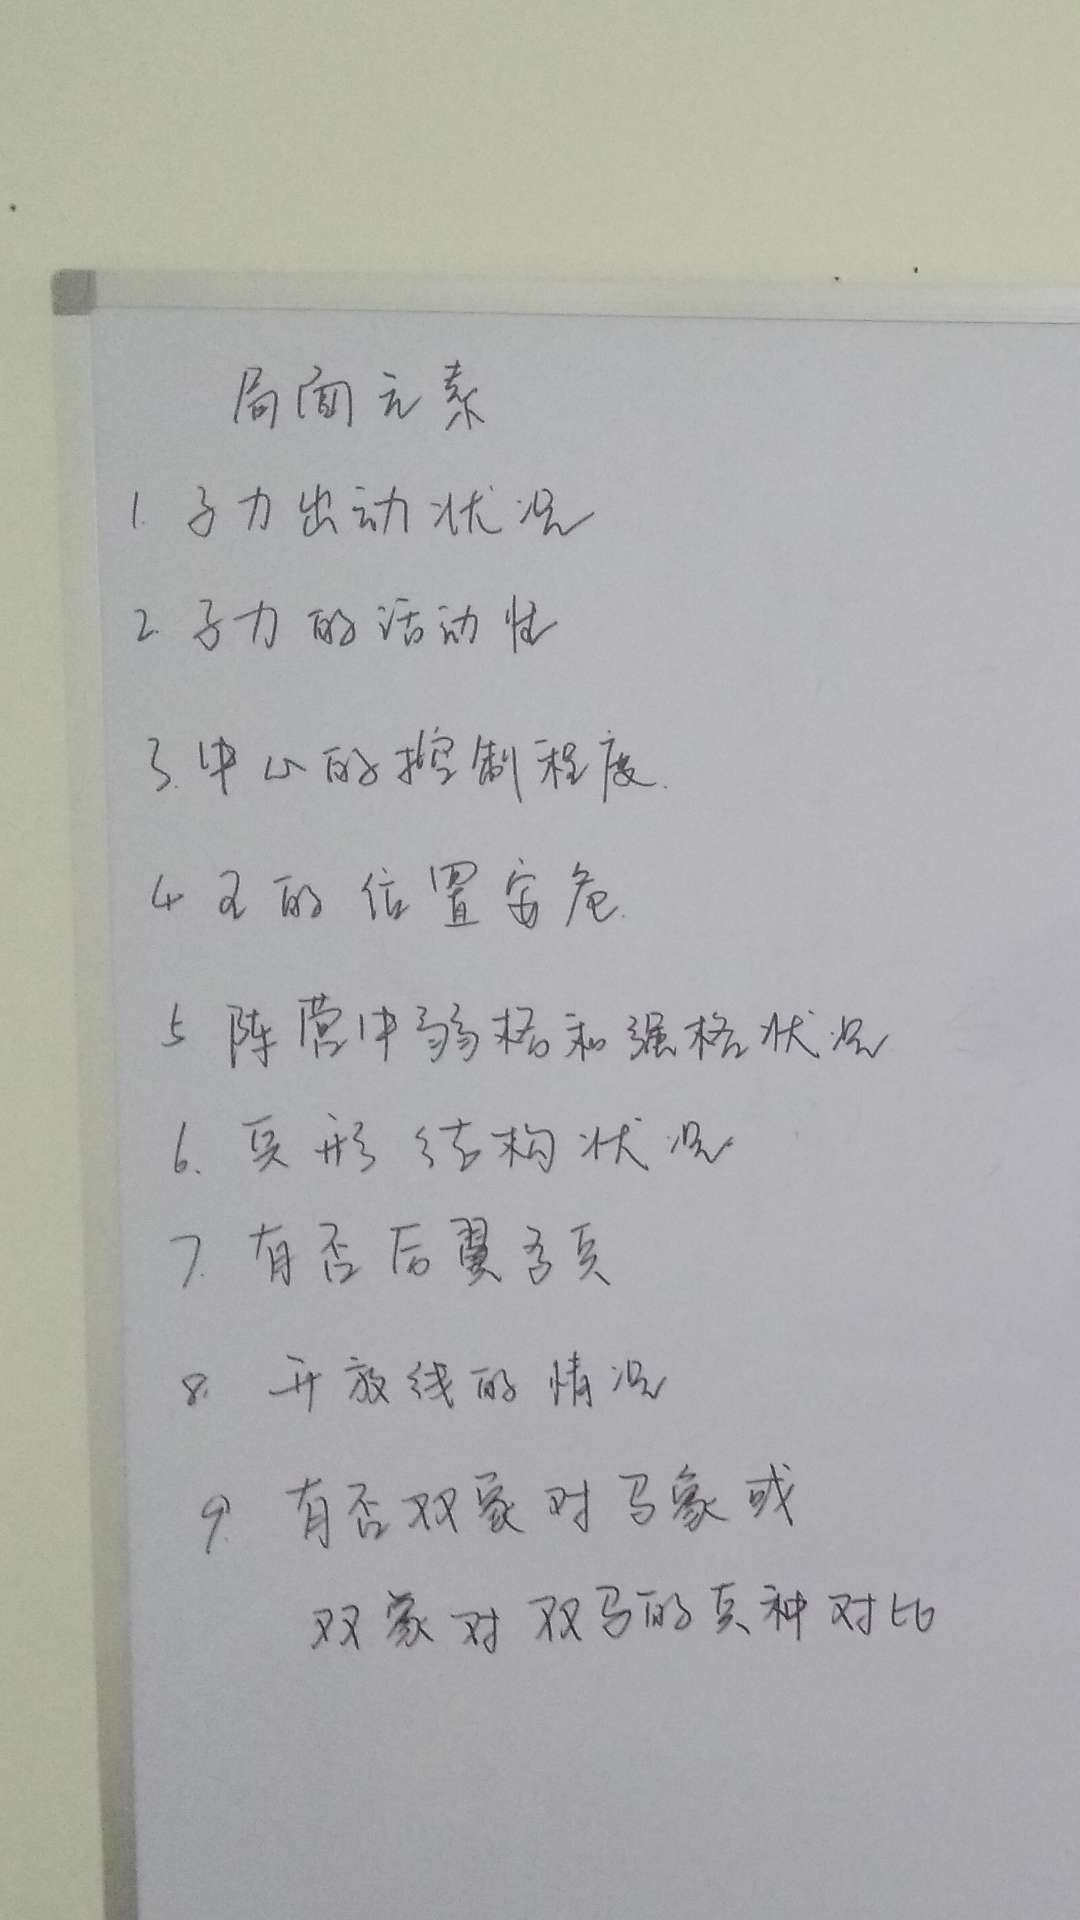 局面元素
1. 子力出动状况
2. 子力的活动性
3. 中心的控制程度.
4 王的位置安危.
5 阵营中弱格和强格状况
6. 兵形结构状况
7. 有否后翼多兵
8. 开放线的情况
9. 有否双象对马象或
双象对双马的兵种对比